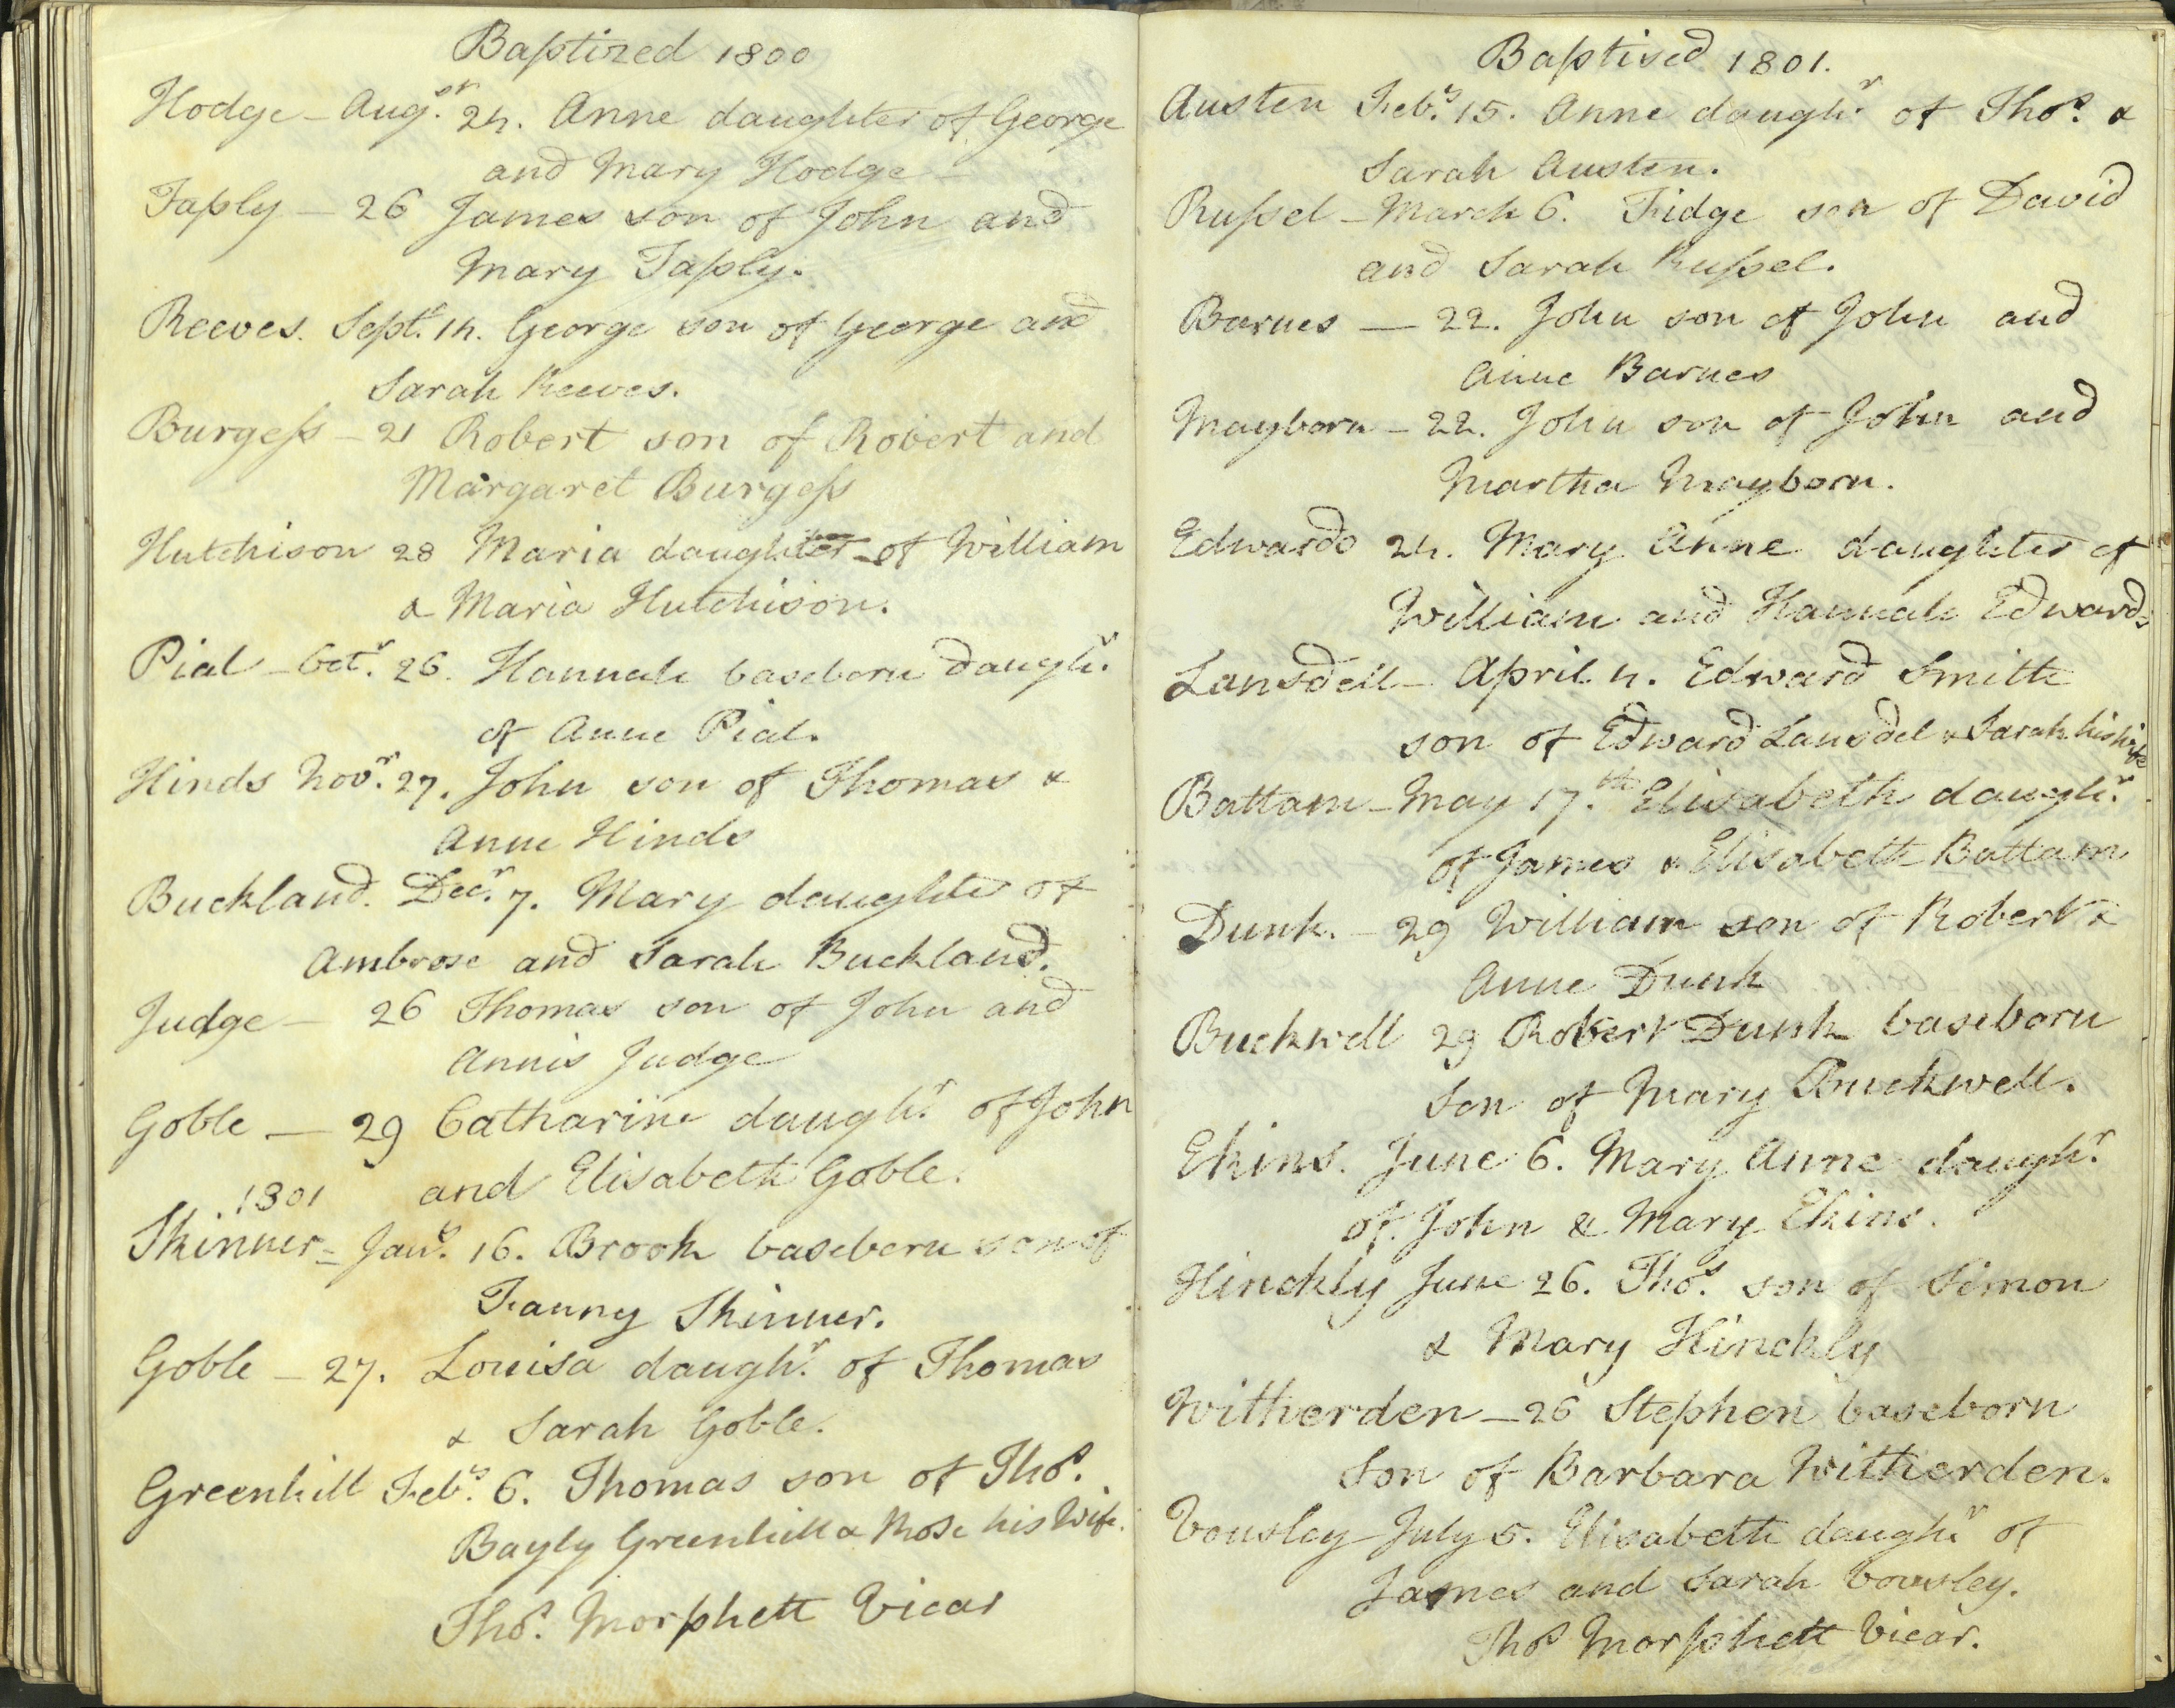 Baptized 1800
Hodge - Augst. 24. Anne daughter of George
and Mary Hodge -
Taply - 26 James son of John and
Mary Taply.
Reeves. Sept. 14. George son of George and
Sarah Reeves.
Burgeſs - 21 Robert son of Robert and
Margaret Burgeſs
Hutchison 28 Maria daughter of William
& Maria Hutchison.
Pial - Octr. 26. Hannah baseborn daughr.
of Anne Pial.
Hinds Novr. 27. John son of Thomas &
Anne Hinds
Buckland. Decr. 7. Mary daughter of
Ambrose and Sarah Buckland.
Judge - 26 Thomas son of John and
Annis Judge
Goble - 29 Catharine daughr. of John
and Elisabeth Goble.
1801
Skinner - Jany. 16. Brook baseborn son of
Fanny Skinner.
Goble - 27. Louisa daughr. of Thomas
& Sarah Goble.
Greenhill Feby. 6. Thomas son of Thos.
Bayly Greenhill & Rose his Wife.
Thos. Morphett Vicar
Baptised 1801.
Austen Feby. 15. Anne daughr. of Thos. &
Sarah Austen.
Ruſsel - March 6. Fidge son of David
and Sarah Ruſsel.
Barnes - 22. John son of John and
Anne Barnes
Mayborn - 22. John son of John and
Martha Mayborn.
Edwards 24. Mary Anne daughter of
William and Hannah Edwards
Lansdell - April 4. Edward Smith
son of Edward Lansdel & Sarah his wife
Battam - May 17.th Elisabeth daughr.
of James & Elisabeth Battam
Dunk. - 29 William son of Robert &
Anne Dunk
Buckwell 29 Robert Dunk baseborn
Son of Mary Buckwell.
Ekins. June 6. Mary Anne daughr.
of John & Mary Ekins.
Hinckly June 26. Thos. son of Simon
& Mary Hinckly
Witherden - 26 Stephen baseborn
Son of Barbara Witherden.
Vousley July 5. Elisabeth daughr. of
James and Sarah Vousley.
Thos Morphett Vicar.